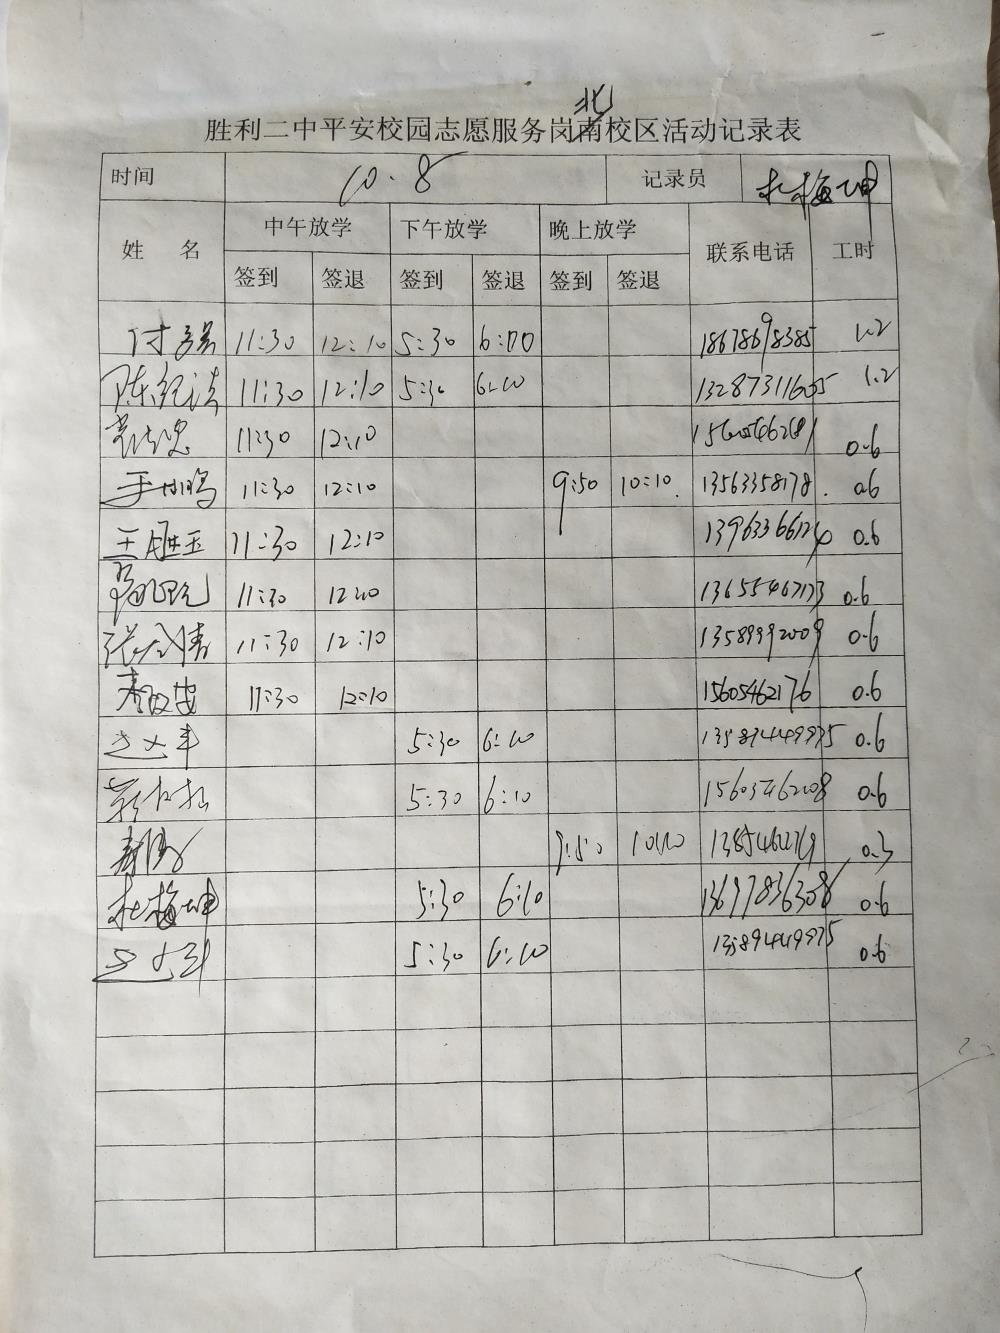 胜利二中平安校园志愿服务岗南校区活动记录表
北
时间 10.8 记录员 杜梅坤
姓 名 中午放学 下午放学 晚上放学 联系电话 工时
签到 签退 签到 签退 签到 签退
11:30 12:10 5:30 6:00 18678698385 1.2
陈纪滨 11:30 12:10 5:30 6:10 13287311605 1.2
11:30 12:10 0.6
11:30 12:10 9:50 10:10 13563358178 0.6
王胜玉 11:30 12:10 0.6
11:30 12:10 13655467173 0.6
11:30 12:10 13589992009 0.6
11:30 12:10 15605462176 0.6
5:30 6:10 13589449975 0.6
5:30 6:10 15605462208 0.6
9:50 10:10 0.3
杜梅坤 5:30 6:10 13697836308 0.6
5:30 6:10 13589449975 0.6